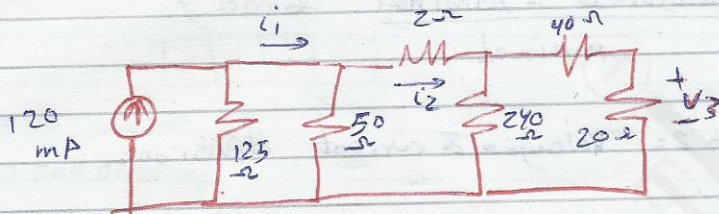 i1
2Ω
40Ω
i2
120
mA
125
Ω
50
Ω
240
Ω
20Ω
+
V3
-